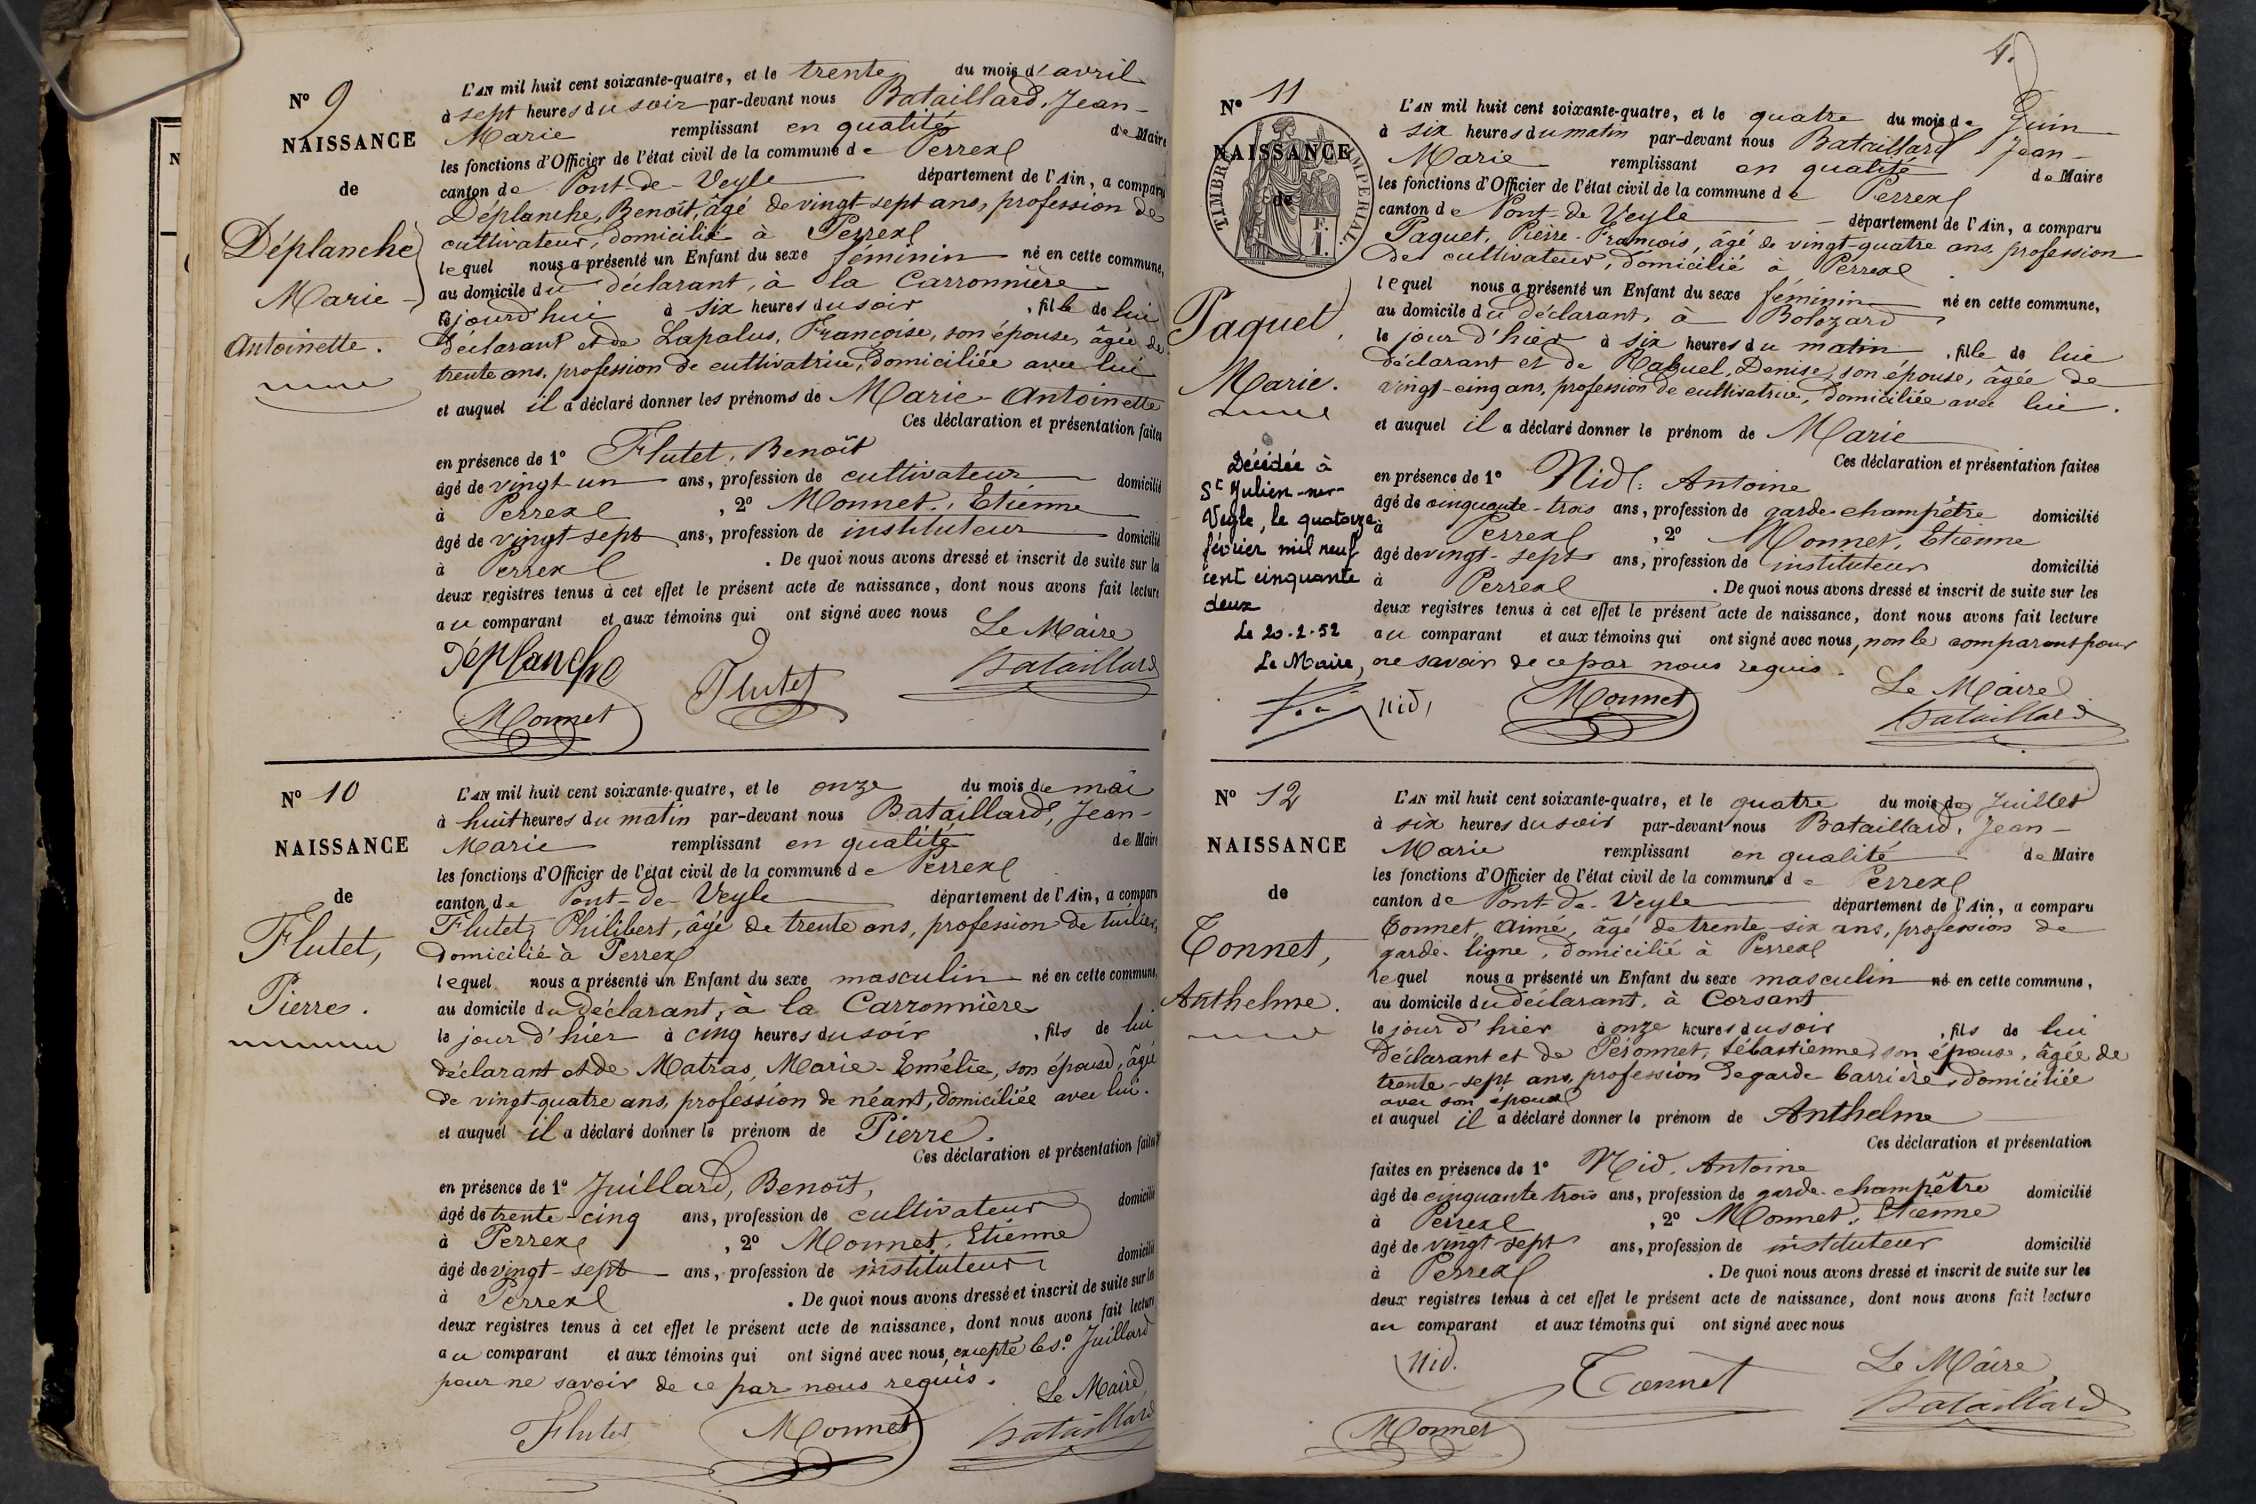 N° 9
NAISSANCE
de
Déplanche
Marie-
Antoinette.
L'AN mil huit cent soixante-quatre, et le trente du mois d'avril
à sept heures du soir par-devant nous Bataillard, Jean-
Marie remplissant en qualité de Maire
les fonctions d'Officier de l'état civil de la commune de Perrex
canton de Pont-de-Veyle département de l'Ain, a comparu
Déplanche, Benoît, âgé de vingt-sept ans, profession de
cultivateur, domicilié à Perrex
lequel nous a présenté un Enfant du sexe féminin né en cette commune,
au domicile du déclarant, à la Carronnière
le jourd'hui à six heures du soir, fille de lui
déclarant et de Lapalus, Françoise, son épouse, âgée de
trente ans, profession de cultivatrice, domiciliée avec lui
et auquel il a déclaré donner les prénoms de Marie-Antoinette
Ces déclaration et présentation faites
en présence de 1° Flutet, Benoît
âgé de vingt-un ans, profession de cultivateur domicilié
à Perrex, 2° Monnet, Etienne
âgé de vingt sept ans, profession de instituteur domicilié
à Perrex. De quoi nous avons dressé et inscrit de suite sur les
deux registres tenus à cet effet le présent acte de naissance, dont nous avons fait lecture
au comparant et aux témoins qui ont signé avec nous
Le Maire
Déplanche
Flutet
Bataillard
Monnet
N° 10
NAISSANCE
de
Flutet,
Pierre.
L'AN mil huit cent soixante-quatre, et le onze du mois de mai
à huit heures du matin par-devant nous Bataillard, Jean-
Marie remplissant en qualité de Maire
les fonctions d'Officier de l'état civil de la commune de Perrex
canton de Pont-de-Veyle département de l'Ain, a comparu
Flutet, Philibert, âgé de trente ans, profession de tuilier,
domicilié à Perrex
lequel nous a présenté un Enfant du sexe masculin né en cette commune,
au domicile du déclarant, à la Carronnière
le jour d'hier à cinq heures du soir, fils de lui
déclarant et de Matras, Marie-Emélie, son épouse, âgée
de vingt-quatre ans, profession de néant, domiciliée avec lui.
et auquel il a déclaré donner le prénom de Pierre.
Ces déclaration et présentation faites
en présence de 1° Juillard, Benoît,
âgé de trente-cinq ans, profession de cultivateur domicilié
à Perrex, 2° Monnet, Etienne
âgé de vingt-sept ans, profession de instituteur domicilié
à Perrex. De quoi nous avons dressé et inscrit de suite sur les
deux registres tenus à cet effet le présent acte de naissance, dont nous avons fait lecture
au comparant et aux témoins qui ont signé avec nous, excepté le s. Juillard
pour ne savoir de ce par nous requis.
Le Maire,
Flutet
Monnet
Bataillard
4.
N° 11
NAISSANCE
de
TIMBRE IMPERIAL.
1 F.
Paquet,
Marie.
Décédée à
St Julien-sur-
Veyle, le quatorze
février mil neuf
cent cinquante
deux
Le 20.2.52
Le Maire,
L'AN mil huit cent soixante-quatre, et le quatre du mois de Juin
à six heures du matin par-devant nous Bataillard Jean-
Marie remplissant en qualité de Maire
les fonctions d'Officier de l'état civil de la commune de Perrex
canton de Pont-de-Veyle département de l'Ain, a comparu
Paquet, Pierre-François, âgé de vingt-quatre ans, profession
de cultivateur, domicilié à Perrex
lequel nous a présenté un Enfant du sexe féminin né en cette commune,
au domicile du déclarant, à Bolozard
le jour d'hier à six heures du matin, fille de lui
déclarant et de Rabuel, Denise, son épouse, âgée de
vingt-cinq ans, profession de cultivatrice, domiciliée avec lui.
et auquel il a déclaré donner le prénom de Marie
Ces déclaration et présentation faites
en présence de 1° Nid, Antoine
âgé de cinquante-trois ans, profession de garde-champêtre domicilié
à Perrex, 2° Monnet, Etienne
âgé de vingt-sept ans, profession de instituteur domicilié
à Perrex. De quoi nous avons dressé et inscrit de suite sur les
deux registres tenus à cet effet le présent acte de naissance, dont nous avons fait lecture
au comparant et aux témoins qui ont signé avec nous, non le comparant pour
ne savoir de ce par nous requis.
Le Maire
Nid
Monnet
Bataillard
N° 12
NAISSANCE
de
Tonnet,
Anthelme.
L'AN mil huit cent soixante-quatre, et le quatre du mois de Juillet
à six heures du soir par-devant nous Bataillard, Jean-
Marie remplissant en qualité de Maire
les fonctions d'Officier de l'état civil de la commune de Perrex
canton de Pont-de-Veyle département de l'Ain, a comparu
Tonnet, Aimé, âgé de trente-six ans, profession de
garde-ligne, domicilié à Perrex
lequel nous a présenté un Enfant du sexe masculin né en cette commune,
au domicile du déclarant, à Corsant
le jour d'hier à onze heures du soir, fils de lui
déclarant et de Péronnet, Sébastienne, son épouse, âgée de
trente-sept ans, profession de garde-barrière, domiciliée
avec son époux
et auquel il a déclaré donner le prénom de Anthelme
Ces déclaration et présentation
faites en présence de 1° Nid, Antoine
âgé de cinquante trois ans, profession de garde-champêtre domicilié
à Perrex, 2° Monnet, Etienne
âgé de vingt sept ans, profession de instituteur domicilié
à Perrex. De quoi nous avons dressé et inscrit de suite sur les
deux registres tenus à cet effet le présent acte de naissance, dont nous avons fait lecture
au comparant et aux témoins qui ont signé avec nous
Nid.
Tonnet
Le Maire,
Bataillard
Monnet